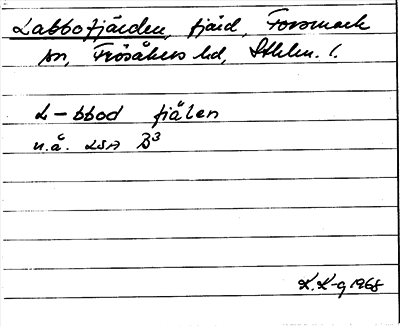 Labbofjärden, fjärd, Forsmark
sn, Frösåkers hd, Sthlm. l.
L-bbod fjälen
u.å. LSA B³
L.L-g 1968